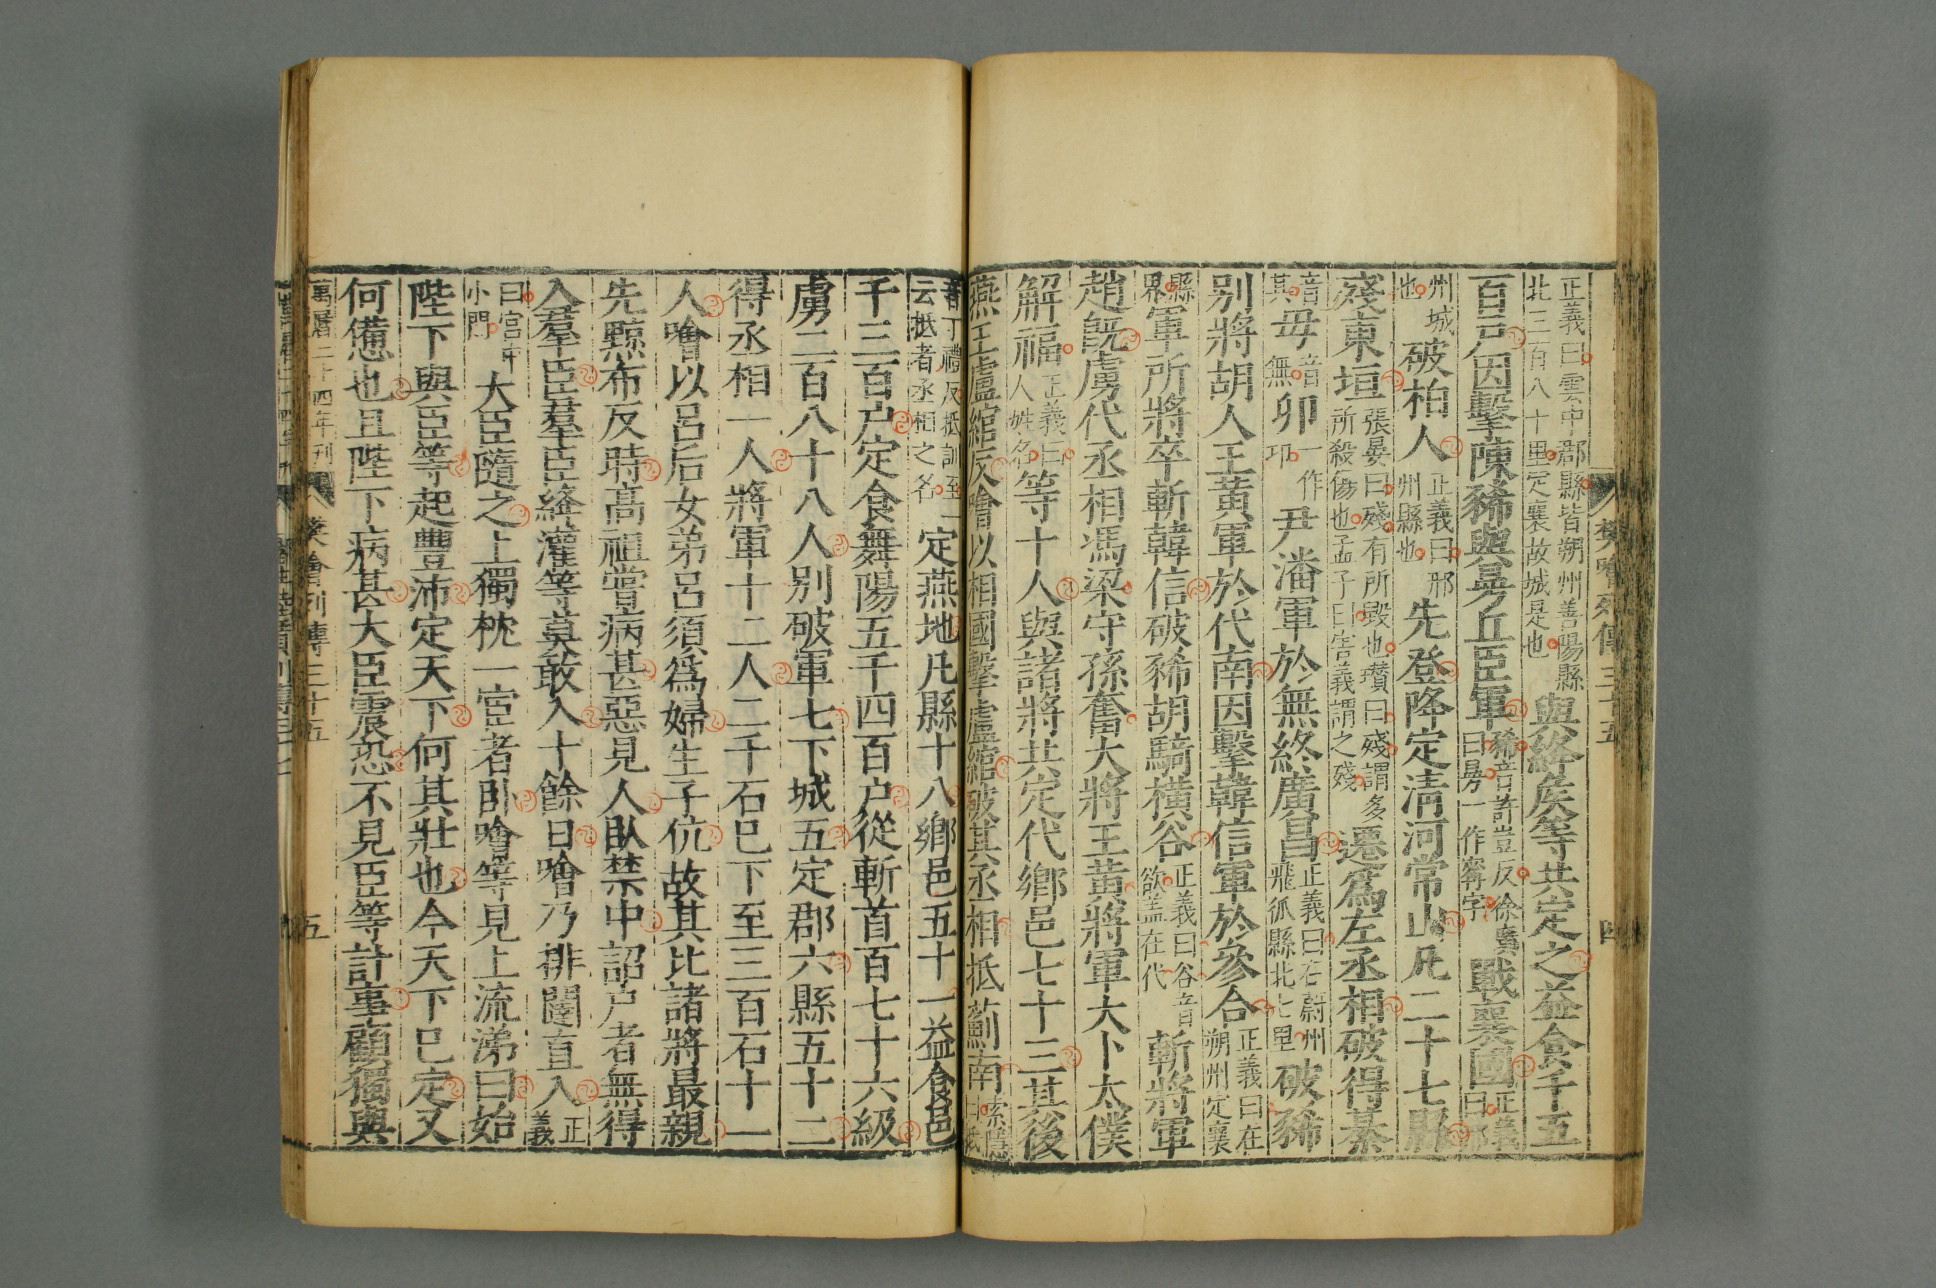 樊噲列傳三十五
四
正義曰雲中郡縣皆朔州善陽縣
北三百八十里定襄故城是也
與絳侯等共定之益食千五
百戶因擊陳豨與曼丘臣軍
豨音許豈反徐廣
曰曼一作甯字
戰襄國
正義
曰邢
州城
也
破柏人
正義曰邢
州縣也
先登降定清河常山凡二十七縣
殘東垣
張晏曰殘有所毀也瓚曰殘謂多
所殺傷也孟子曰害義謂之殘
遷爲左丞相破得綦
音
其
毋
音
無
卬
一作
邛
尹潘軍於無終廣昌
正義曰在蔚州
飛狐縣北七里
破豨
別將胡人王黃軍於代南因擊韓信軍於參合
正義曰在
朔州定襄
縣
界
軍所將卒斬韓信破豨胡騎橫谷
正義曰谷音
欲蓋在代
斬將軍
趙旣虜代丞相馮梁守孫奮大將王黃將軍大卜太僕
解福
正義曰
人姓名
等十人與諸將共定代鄉邑七十三其後
燕王盧綰反噲以相國擊盧綰破其丞相抵薊南
索隱
曰抵
音丁禮反抵訓至一
云抵者丞相之名
定燕地凡縣十八鄉邑五十一益食邑
千三百户定食舞陽五千四百户從斬首百七十六級
虜二百八十八人別破軍七下城五定郡六縣五十二
得丞相一人將軍十二人二千石巳下至三百石十一
人噲以呂后女弟呂須爲婦生子伉故其比諸將最親
先黥布反時高祖嘗病甚惡見人臥禁中詔户者無得
入羣臣羣臣絳灌等莫敢入十餘日噲乃排闥直入
正
義
曰宮中
小門
大臣隨之上獨枕一宦者臥噲等見上流涕曰始
陛下與臣等起豐沛定天下何其壯也今天下巳定又
何憊也且陛下病甚大臣震恐不見臣等計事顧獨與
萬曆二十四年刊
樊噲列傳三十五
五